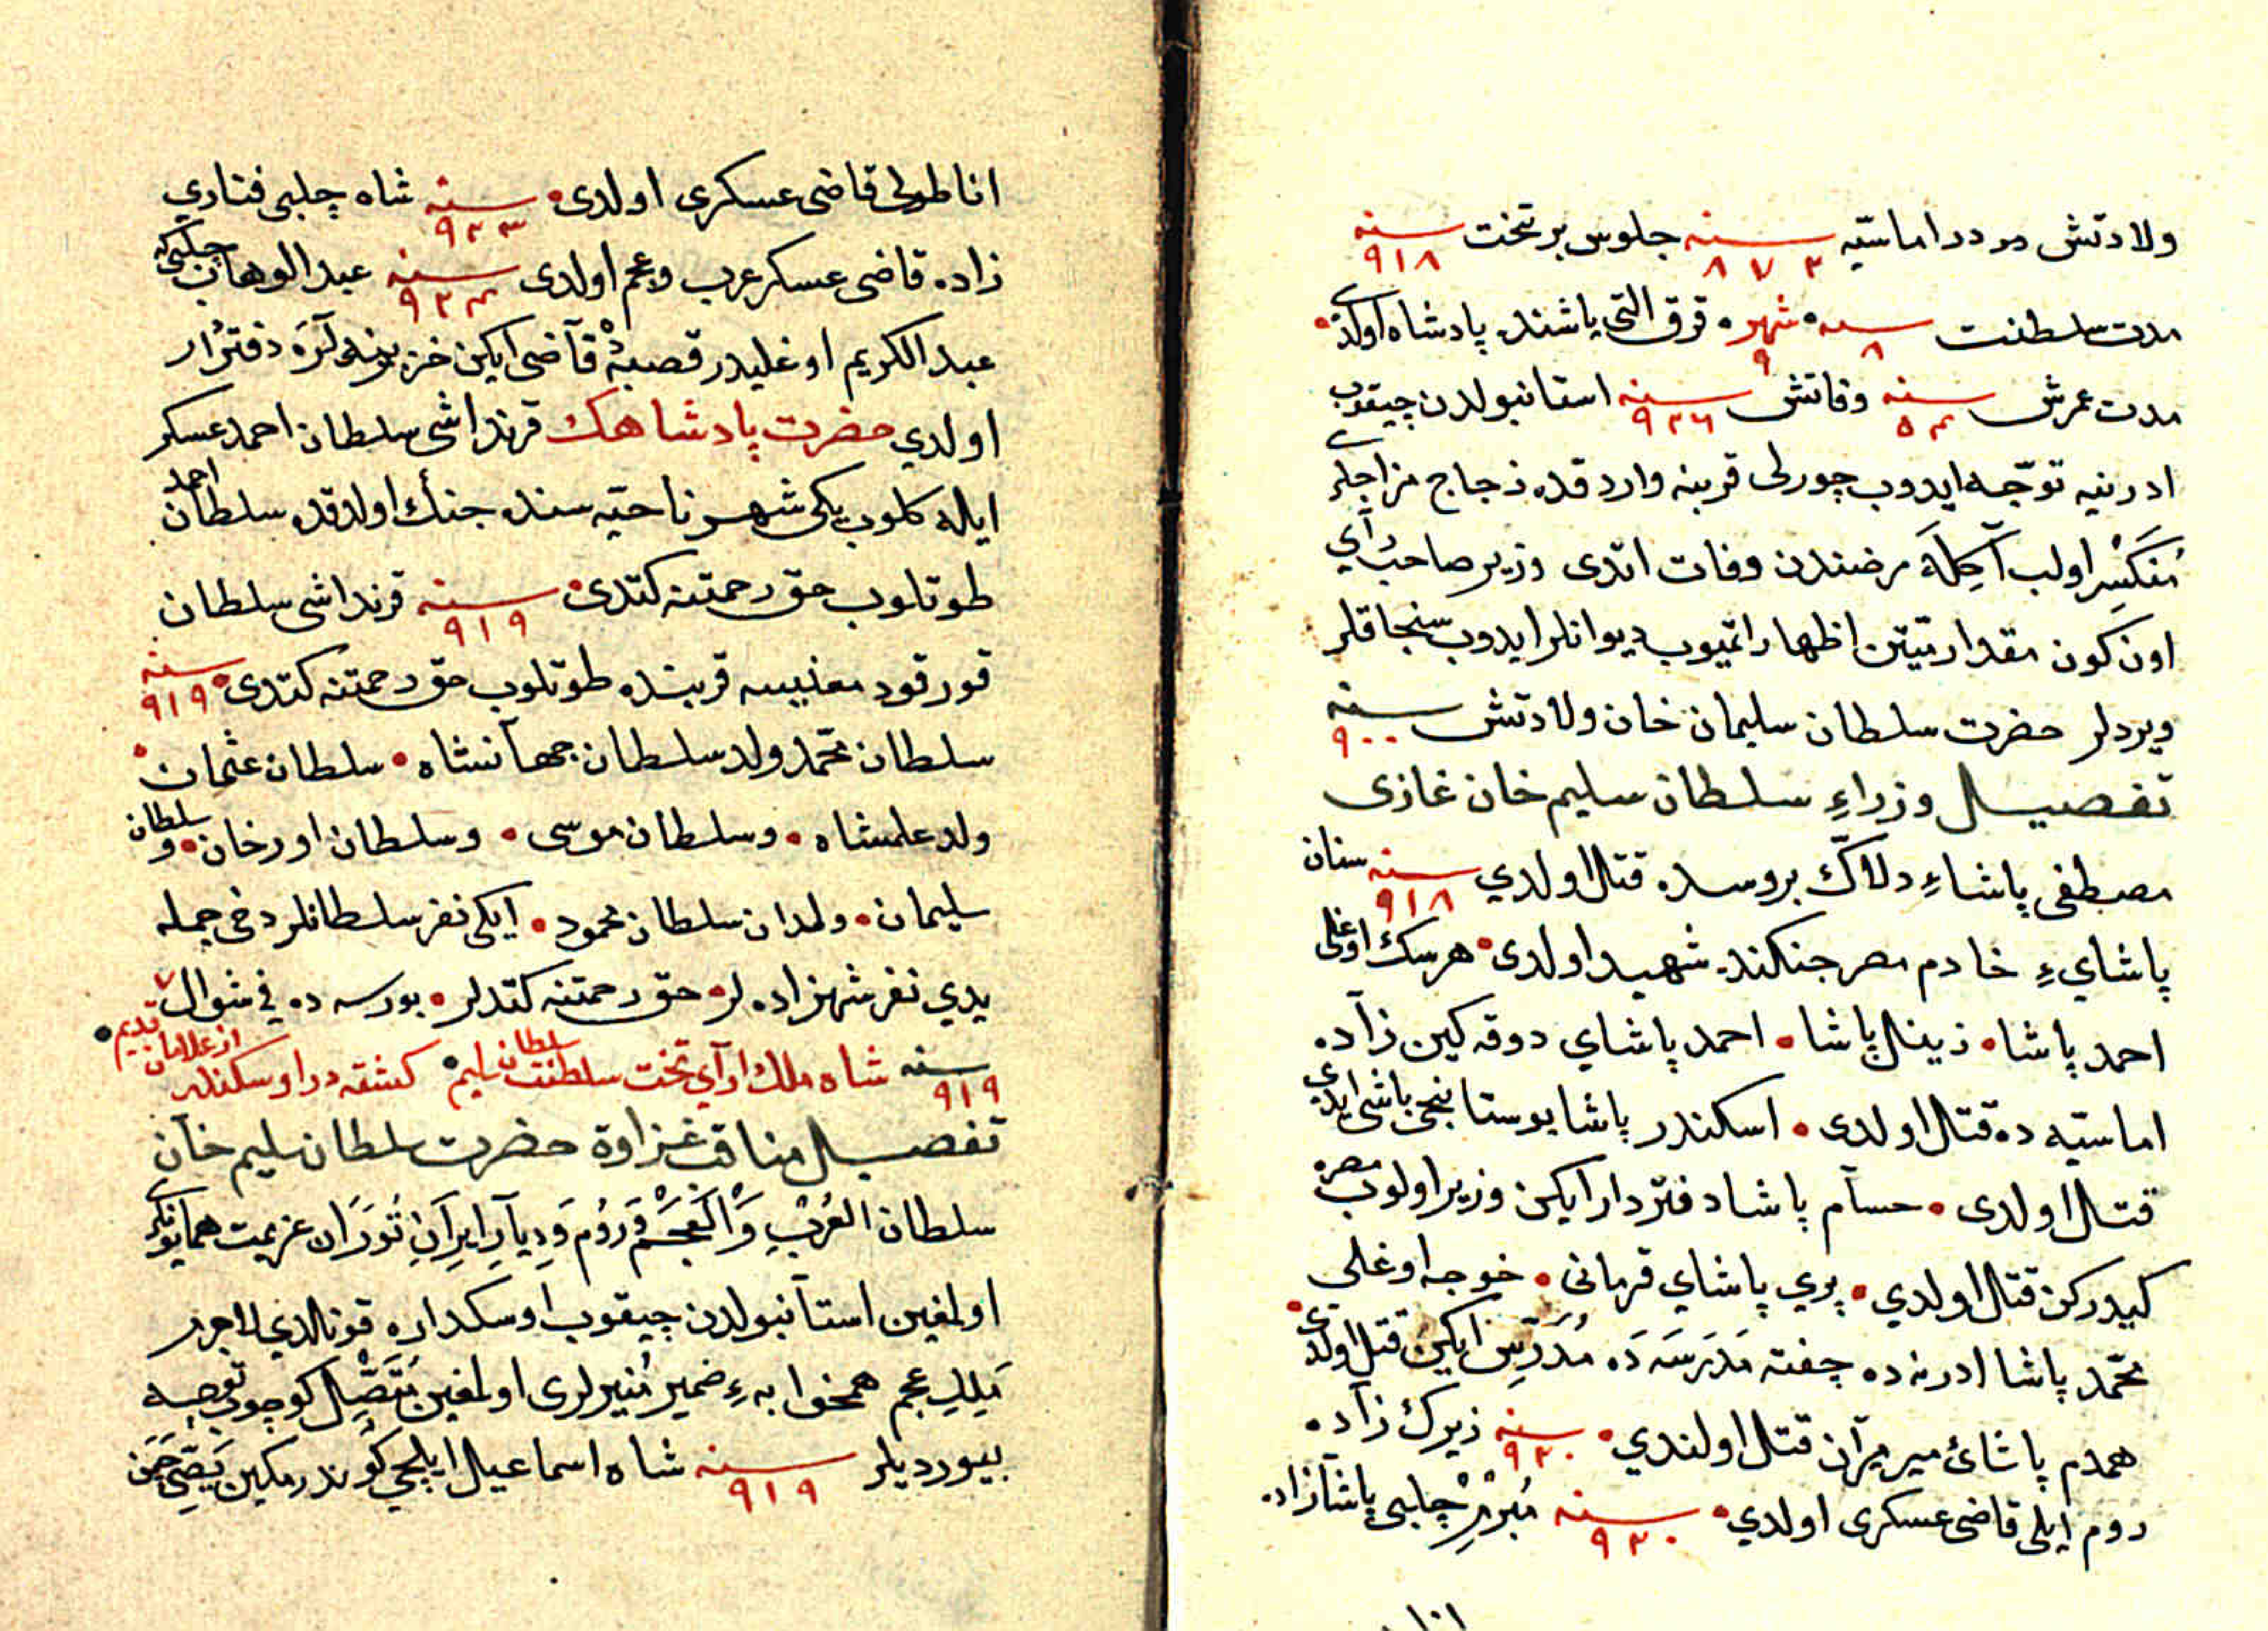 ولادتش در اماسيّه سنه ٨٧٢ جلوس بر تخت سنه ٩١٨
مدت سلطنت سنه ٨ شهر ٩ قرق التى ياشنده پادشاه اولدى
مدت عمرش سنه ٥٤ وفاتش سنه ٩٢٦ استانبولدن چيقوب
ادرنيه توجّه ايدوب چورلى قربنه واردقده زجاج مزاجلرى
مُنكَسِر اولب آكِلَه مرضندن وفات اتدى وزير صاحب رأي
اون كون مقدار تيتن اظهار اتميوب ديوانلر ايدوب سنجاقلر
ويردلر حضرت سلطان سليمان خان ولادتش سنه ٩٠٠
تفصيل وزراءِ سلطان سليم خان غازى
مصطفى پاشاءِ دلاّك بروسده قتل اولدي سنه ٩١٨ سنان
پاشايءِ خادم مصر جنكنده شهيد اولدى هرسك اوغلى
احمد پاشا زينل پاشا احمد پاشاي دوقه كين زاده
اماسيّه ده قتل اولدى اسكندر پاشا بوستانجى باشى ايدي
قتل اولدى حسام پاشا دفتردار ايكن وزير اولوب مصره
كيدركن قتل اولدي پري پاشاي قرمانى خوجه اوغلى
محمّد پاشا ادرنه ده چفته مَدرَسَه دَه مُدَرّسِ ايكن قتل اولدى
همدم پاشائ مير ميران قتل اولندي سنه ٩٢٠ زيرك زاده
روم ايلى قاضى عسكرى اولدي سنه ٩٢٠ چلبى پاشازاده
انا
اناطولى قاضى عسكرى اولدى سنه ٩٢٣ شاه چلبى فناري
زاده قاضى عسكر عرب وعجم اولدى سنه ٩٢٤ عبد الوهاب چلبى كه
عبد الكريم اوغليدر قصبه ده قاضى ايكن دفتردار
اولدي حضرت پادشاهك قرنداشى سلطان احمد عسكر
ايله كلوب يكى شهر ناحيّه سنده جنك اولدقده سلطان احمد
طوتلوب حق رحمتنه كتدى سنه ٩١٩ قرنداشى سلطان
قورقود مغنيسه قربنده طوتلوب حق رحمتنه كتدى سنه ٩١٩
سلطان محمّد ولد سلطان جهانشاه سلطان عثمان
ولد علمشاه وسلطان موسى وسلطان اورخان وسلطان
سليمان ولدان سلطان محمود ايكى نفر سلطانلر دخى جمله
يدي نفر شهزاده لر حق رحمتنه كتدلر بورسه ده في شوال ٧
سنه ٩١٩ شاه ملك اراي تخت سلطنت سلطان سليم كشته در او سكندر از غلامان قديم
تفصيل مناقب غزاوة حضرت سلطان سليم خان
سلطان العُربِ وَالعَجَم وَرُوم وَدِيارِ ايرانِ تُورَان عزيمت همايونلرى
اولمغين استانبولدن چيقوب اوسكداره قونالدي لاجرم
مَلِكِ عجم همخوابهءِ ضمير مُنيرلرى اولمغين مُتّصِل كوچوب توجه
بيورديلر سنه ٩١٩ شاه اسماعيل ايلچي كوندرمكين